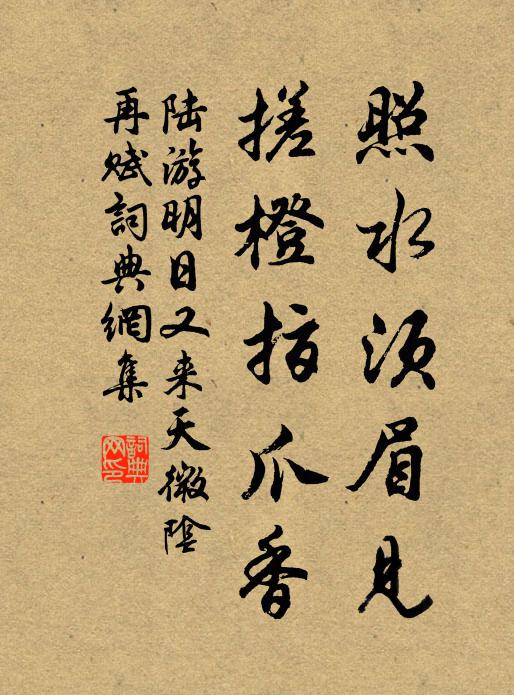 照水须眉见
搓橙指爪香
陆游明日又来天微阴
再赋詞典網集
詞典
网印